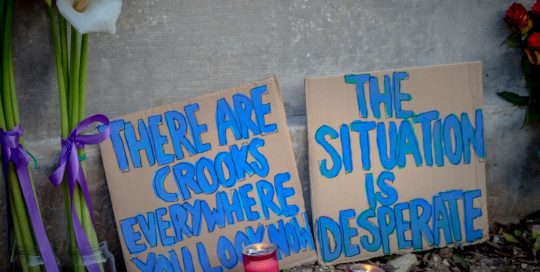 THERE ARE
CROOKS
EVERYWHERE
YOU LOOK NOW
THE
SITUATION
IS
DESPERATE